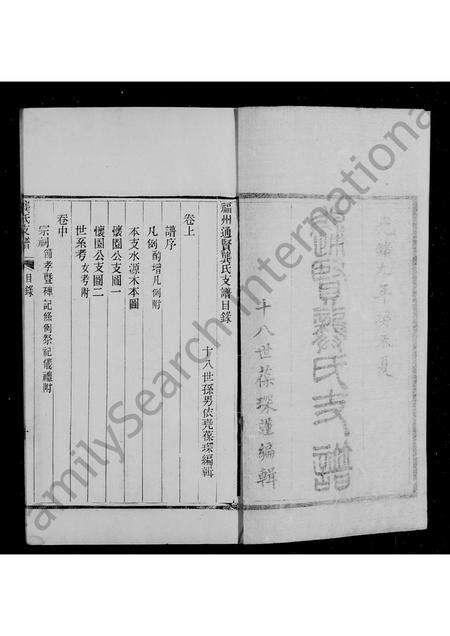 福州通賢龔氏支譜
十八世葆琛謹編輯
福州通賢龔氏支譜目錄
十八世孫男依堯葆琛編輯
卷上
譜序
凡例 酌增凡例附
本支水源木本圖
懷園公支圖一
懷園公支圖二
世系考 攷考附
卷中
宗祠 碑記條例祭祀儀禮附
龔氏支譜 目錄
FamilySearch International